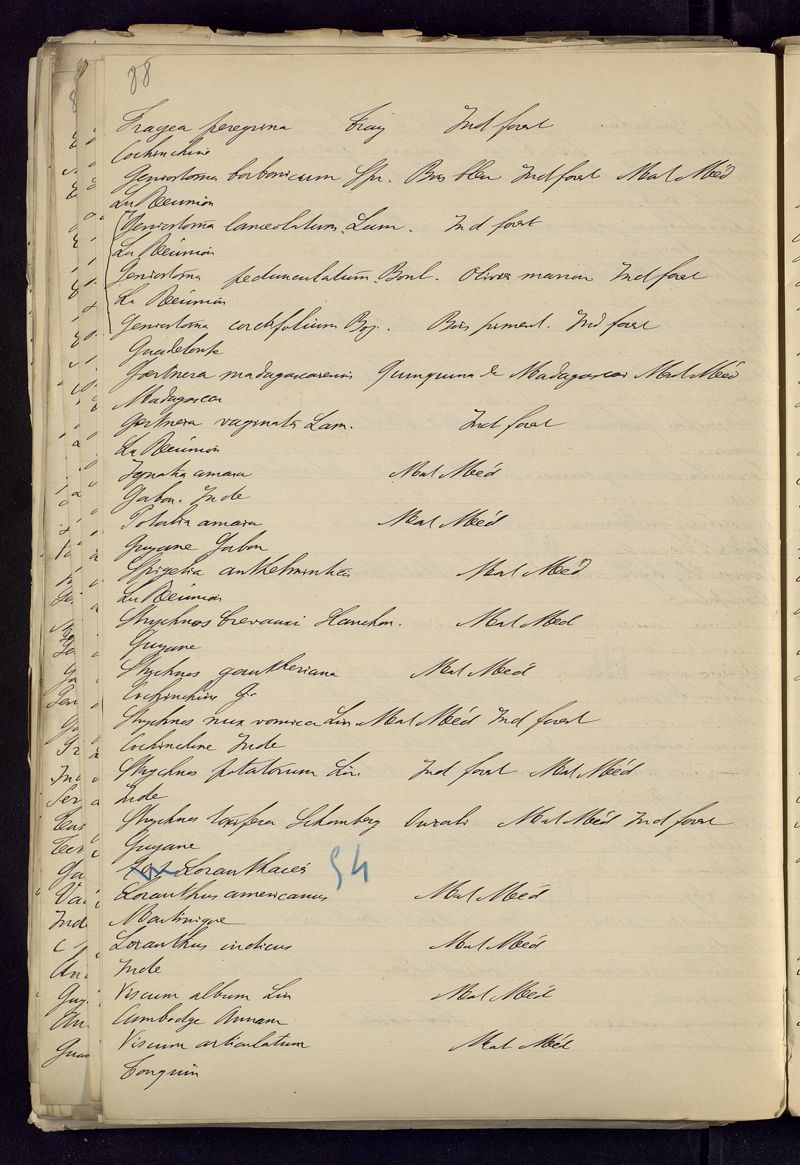 88
Fragea peregrina Traiy Ind forest
Cochinchine
Geniostoma borbonicum Spr. Bois bleu Ind forest Mat Méd
La Réunion
Geniostoma lanceolatum Lam. Ind forest
La Réunion
Geniostoma pedunculatum Boul. Olivier marron Ind forest
La Réunion
Geniostoma cordifolium Boj. Bois piment. Ind forest
Guadeloupe
Gartnera madagascarensis Quinquina de Madagascar Mat Méd
Madagascar
Gartnera vaginata Lam. Ind forest
La Réunion
Ignatia amara Mat Méd
Gabon. Inde
Potalia amara Mat Méd
Guyane Gabon
Spigelia anthelmintica Mat Méd
La Réunion
Strychnos Crevauxi Planchon. Mat Méd
Guyane
Strychnos gautheriana Mat Méd
Cochinchine
Strychnos nux vomica Lin. Mat Méd Ind forest
Cochinchine Inde
Strychnos potatorum Lin. Ind forest Mat Méd
Inde
Strychnos toxifera Schomberg Ourali Mat Méd Ind forest
Guyane
Loranthacées 94
Loranthus americanus Mat Méd
Martinique
Loranthus indicus Mat Méd
Inde
Viscum album Lin Mat Méd
Cambodge Annam
Viscum articulatum Mat Méd
Tonquin